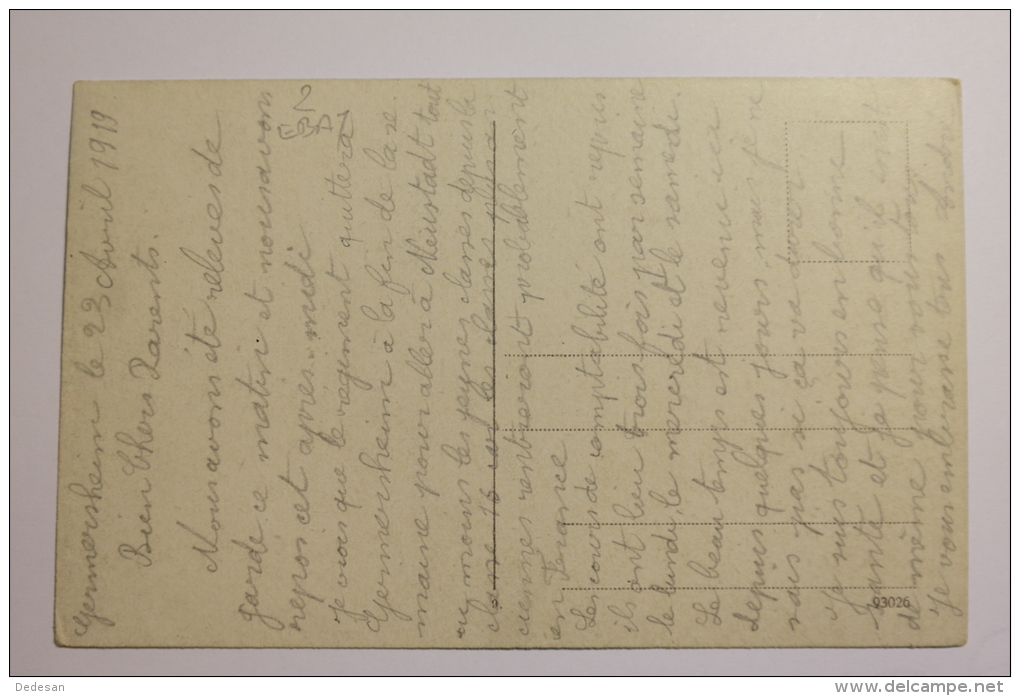 Germersheim le 23 Avril 1919.
Bien Chers Parents.
Nous avons été relevés de
garde ce matin et nous avons
repos cet après-midi
Je crois que le régiment quittera
Germersheim à la fin de la se
maine pour aller à Neustadt tout
au moins les jeunes classes depuis la
classe 16 car les classes plus an
ciennes rentreraient probablement
en France
Les cours de comptabilité ont repris
ils ont lieu trois fois par semaine
le lundi, le mercredi et le samedi.
Le beau temps est revenu ici
depuis quelques jours mais je ne
sais pas si ça va durer
Je suis toujours en bonne
santé et je pense qu'il en est
de même pour vous tous
Je vous embrasse tous André
93026
Dedesan
www.delcampe.net